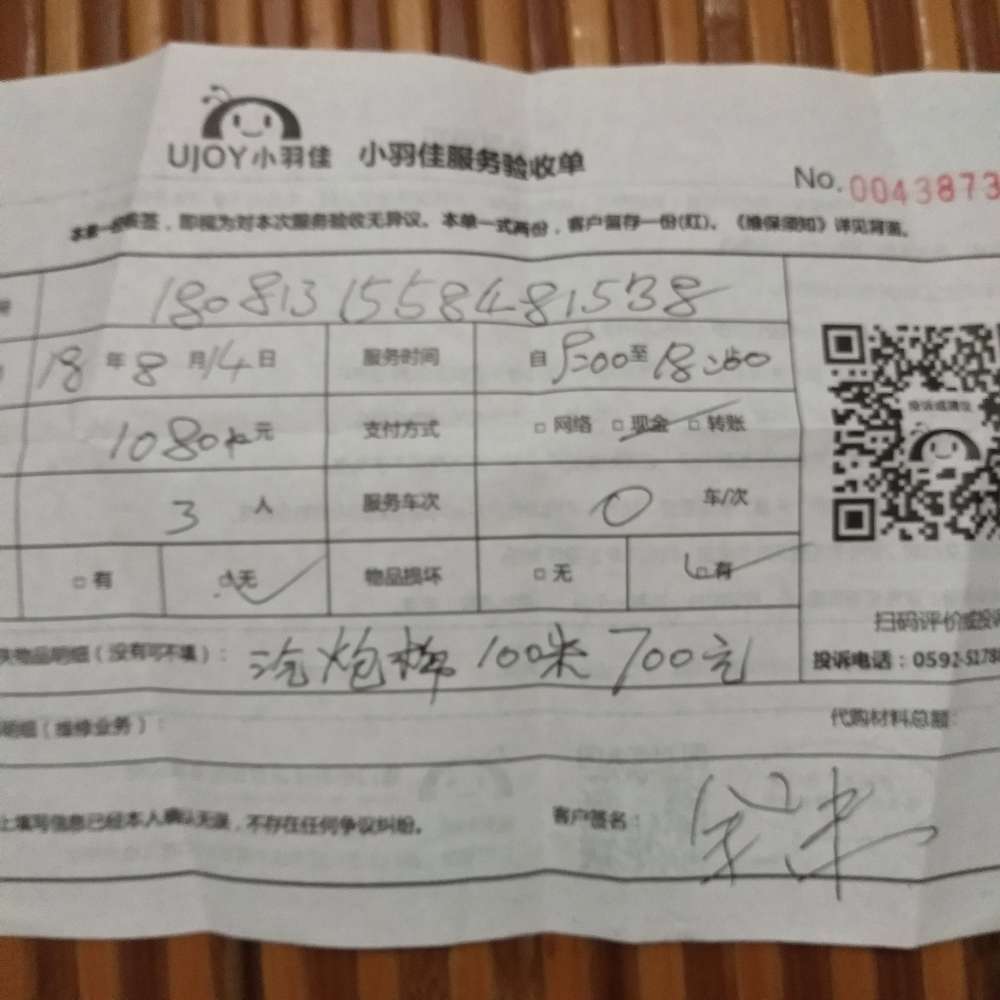 UJOY小羽佳 小羽佳服务验收单
No. 0043873
签，即视为对本次服务验收无异议。本单一式两份，客户留存一份(红)。《维保须知》详见背面。
180813155848 1538
18年8月14日 服务时间 自 :00至18:
1080元 支付方式 □网络 □现金 □转账
3人 服务车次 0车/次
□有 □无 物品损坏 □无 □有
投诉或建议
扫码评价或投诉
投诉电话：0592-5178
物品明细（没有可不填）： 泡棉 100米 700元
明细（维修业务）： 代购材料总额:
上填写信息已经本人确认无误，不存在任何争议纠纷。 客户签名：